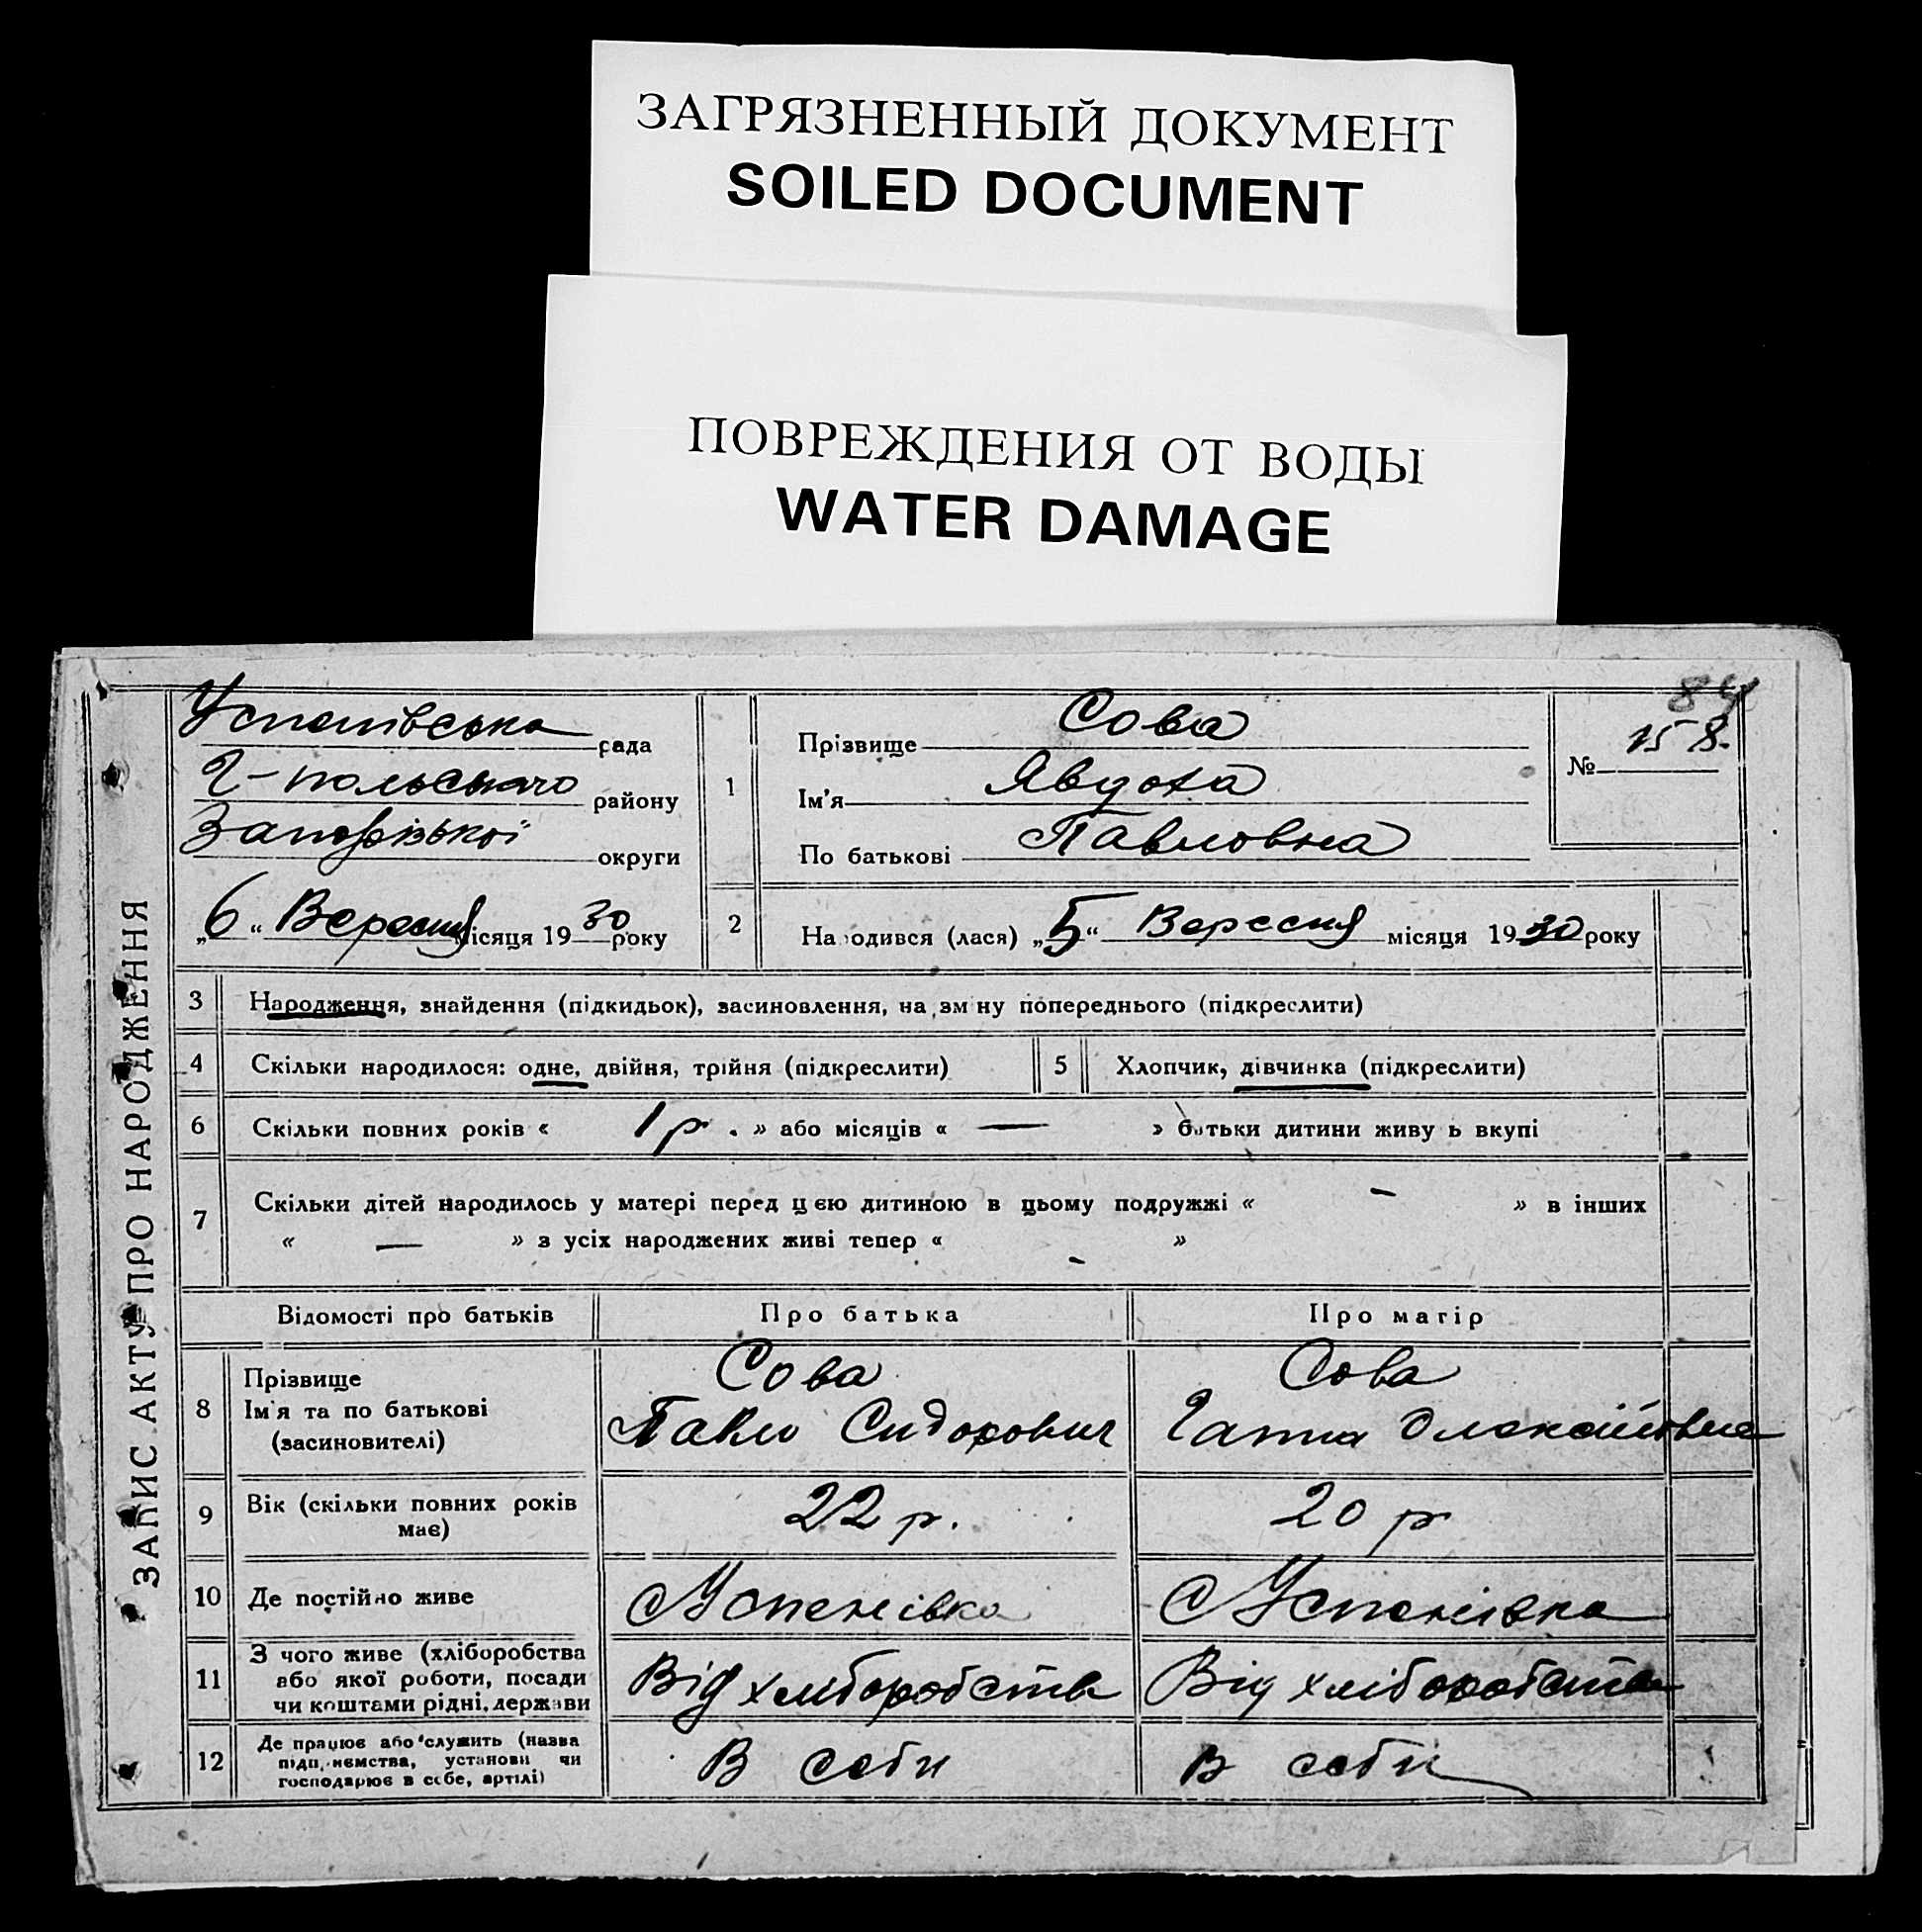 ЗАГРЯЗНЕННЫЙ ДОКУМЕНТ
SOILED DOCUMENT
ПОВРЕЖДЕНИЯ ОТ ВОДЫ
WATER DAMAGE
ЗАПИС АКТУ ПРО НАРОДЖЕННЯ
84
Успенівська рада
Г-польського району
Запорізької округи
„6“ Вересня місяця 1930 року
1
Прізвище Сова
Ім'я Явдоха
По батькові Павловна
№ 158.
2
Народився (лася) „5“ Вересня місяця 1930 року
3 Народження, знайдення (підкидьок), засиновлення, на зм ну попереднього (підкреслити)
4 Скільки народилося: одне, двійня, трійня (підкреслити)
5 Хлопчик, дівчинка (підкреслити)
6 Скільки повних років « 1 р. » або місяців « — » батьки дитини живу ь вкупі
7 Скільки дітей народилось у матері перед цією дитиною в цьому подружжі « – » в інших
« — » з усіх народжених живі тепер « - »
Відомості про батьків Про батька Про матір
8 Прізвище
Ім'я та по батькові
(засиновителі)
Сова
Павло Сидорович
Сова
Ганна Олексіївна
9 Вік (скільки повних років
має)
22 р.
20 р
10 Де постійно живе
с Успенівка
с Успенівка
11 З чого живе (хліборобства
або якої роботи, посади
чи коштами рідні, держави
Від хліборобства
Від хліборобства
12 Де працює або служить (назва
підп. иємства, установи чи
господарює в себе, артілі)
В себи
В себи